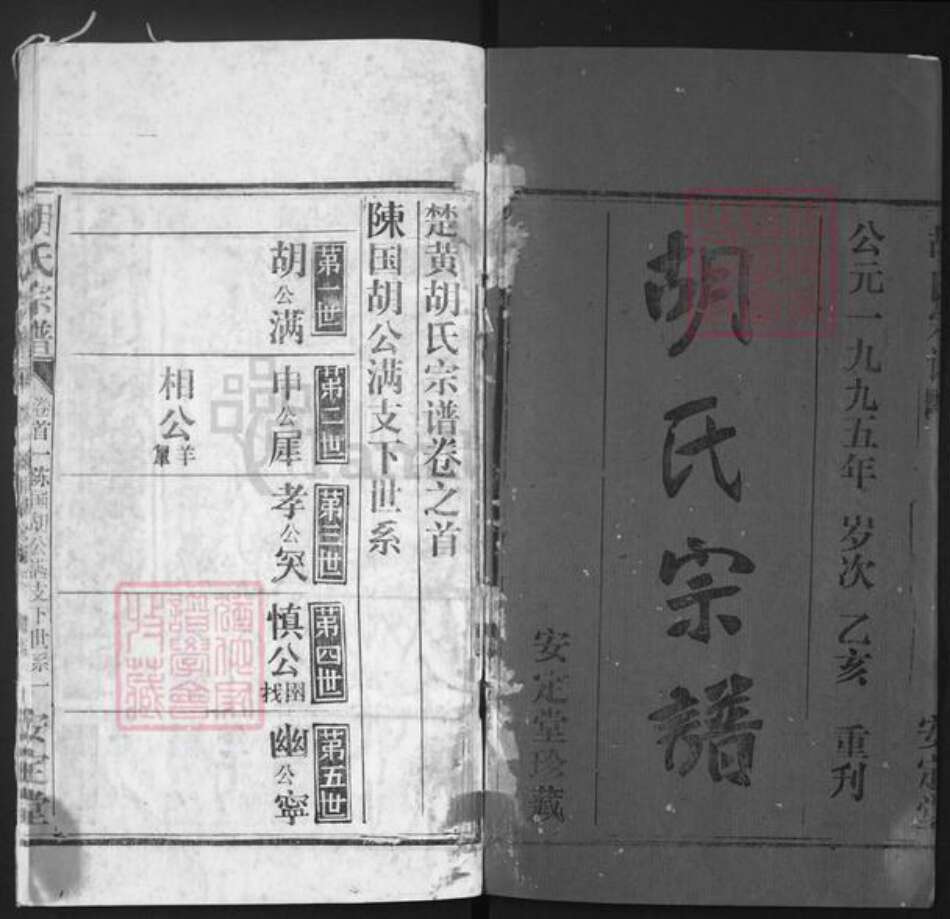 公元一九九五年 岁次 乙亥 重刊
胡氏宗譜
安定堂珍藏
楚黄胡氏宗谱卷之首
陳国胡公满支下世系
第一世
胡公满
第二世
申公犀
相公
第三世
孝公突
第四世
慎公圉
第五世
幽公宁
胡氏宗譜 卷首一陈国胡公满支下世系一 安定堂